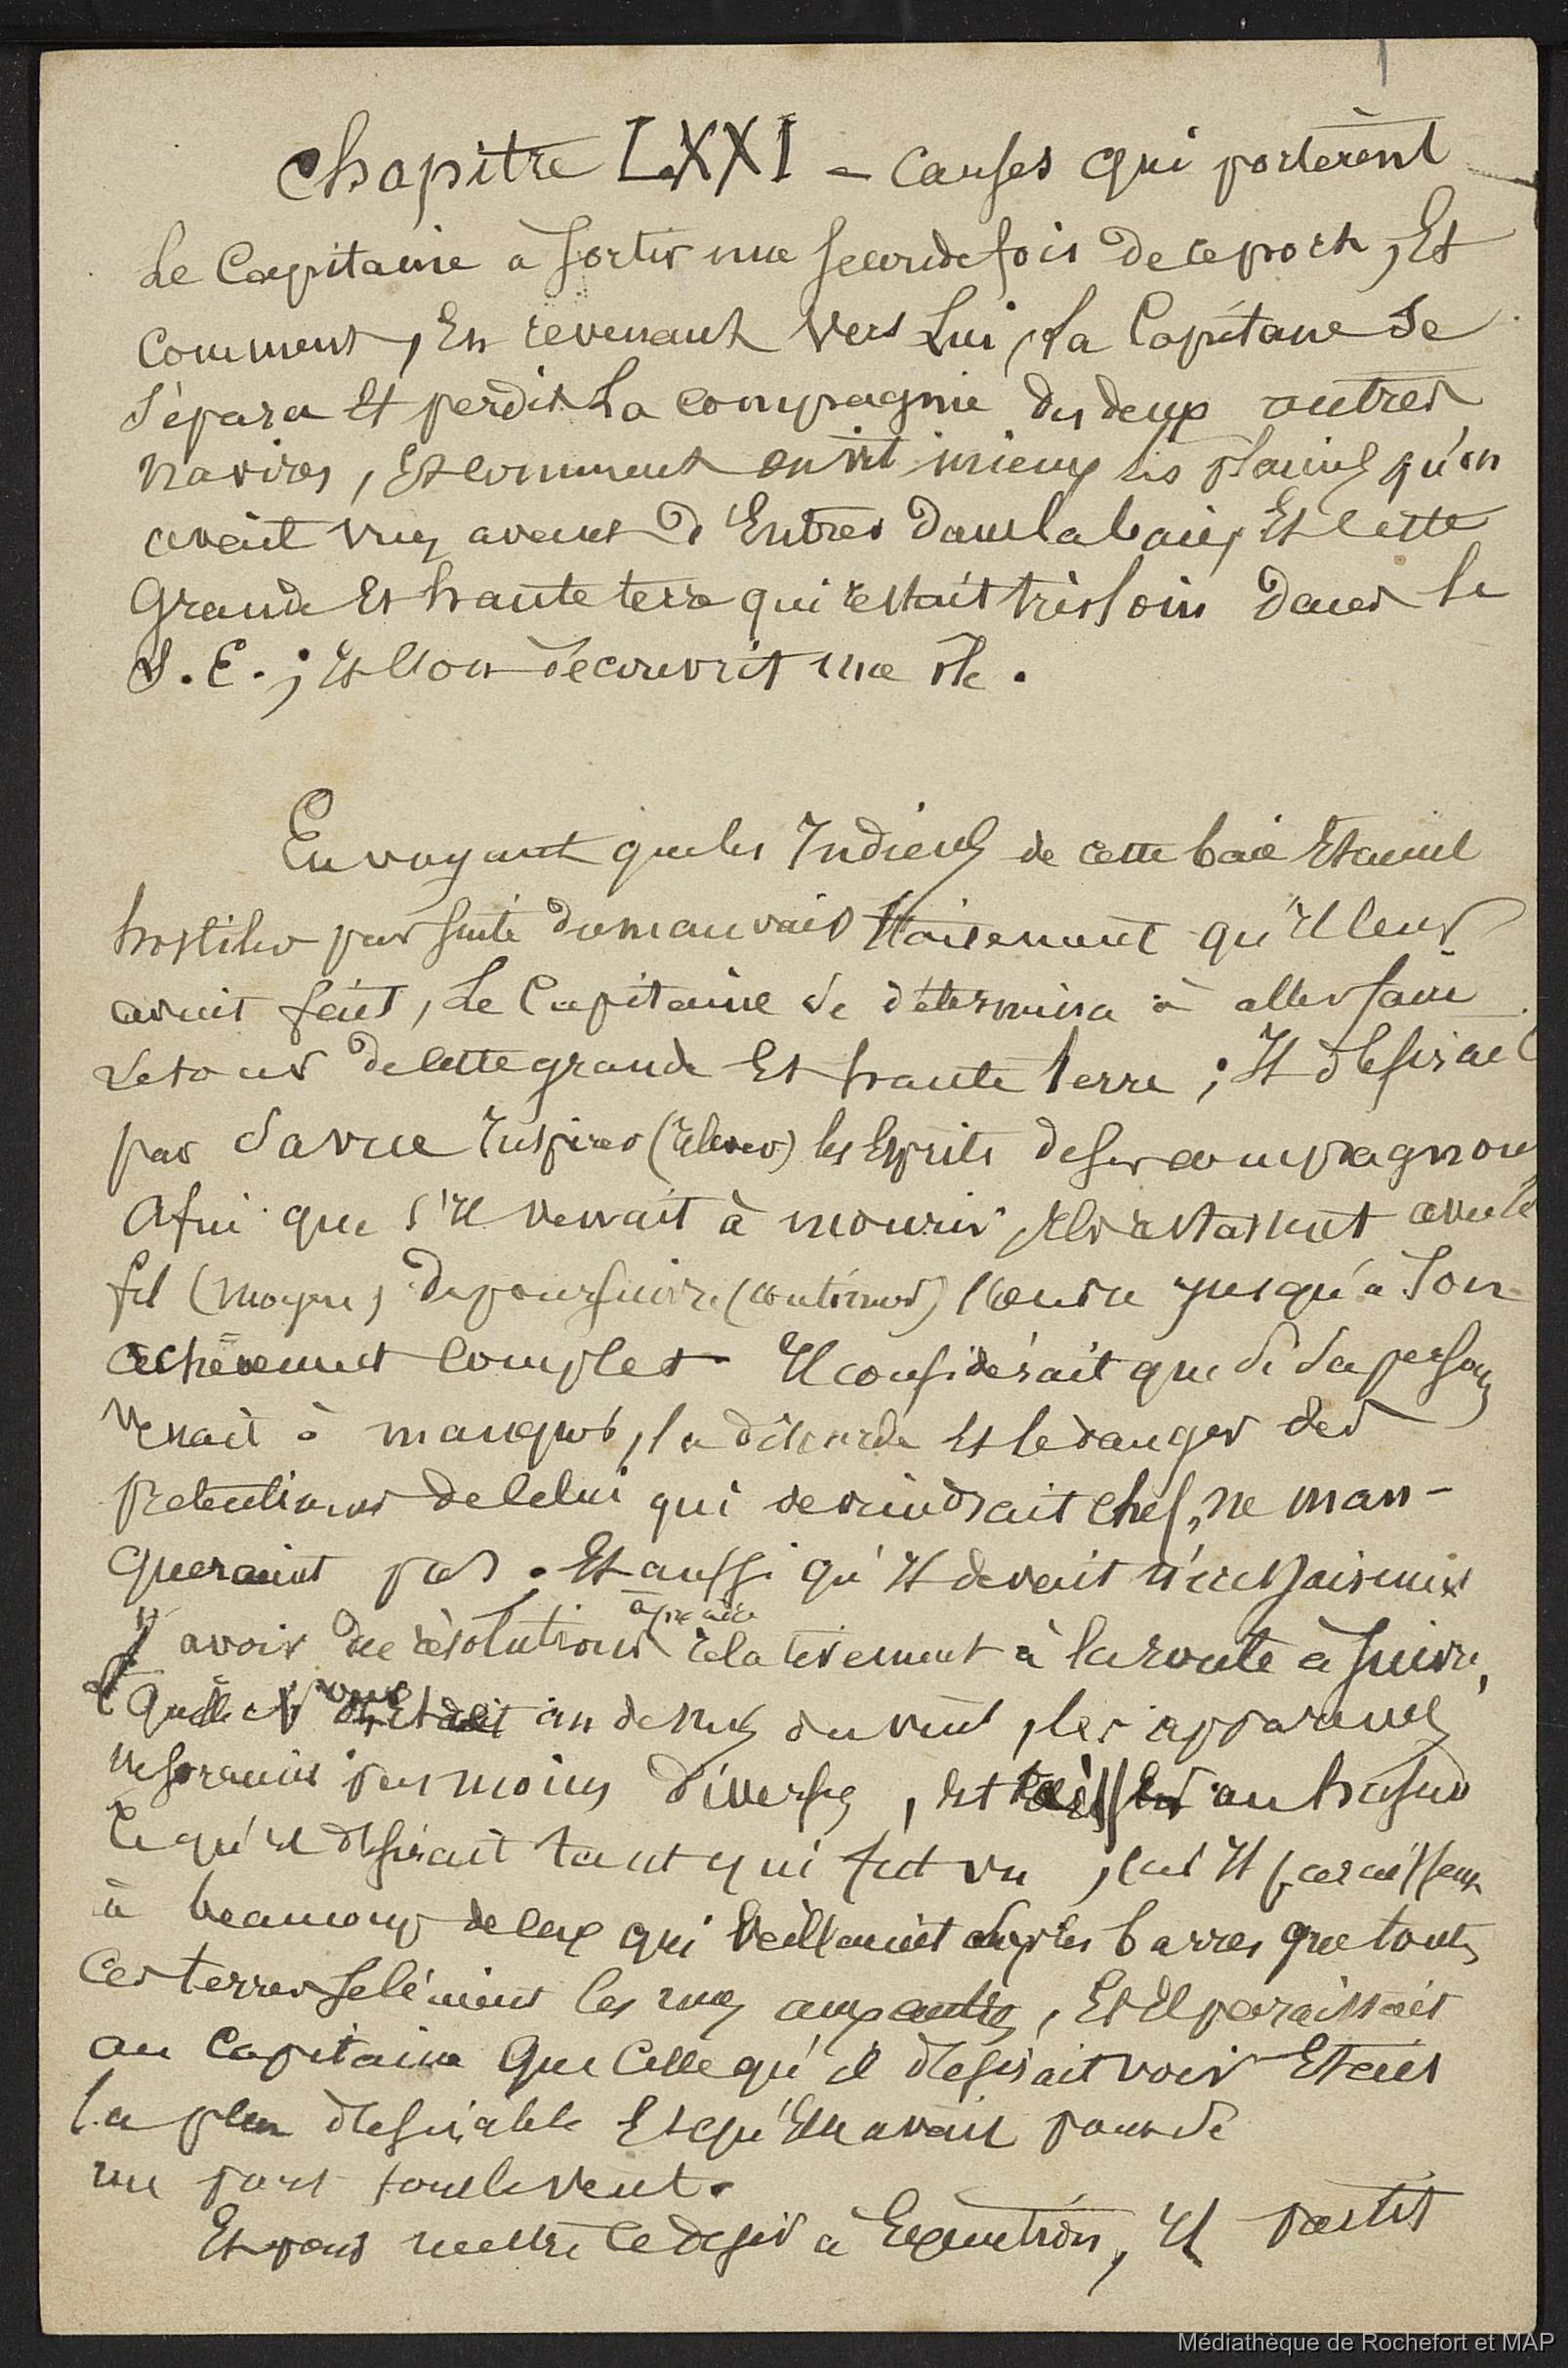 Chapitre LXXI - Causes qui portèrent
Le Capitaine à sortir une seconde fois de ce port, Et
comment, En revenant vers Lui, La Capitane se
sépara Et perdit La compagnie des deux autres
navires, Et comment on vit mieux les plaines qu'on
avait vues avant d'Entrer dans la baie, Et cette
Grande Et haute terre qui restait très loin dans le
S. E. ; Et l'on découvrit une île.
En voyant que les Indiens de cette baie Etaient
hostiles par suite du mauvais traitement qu'Il leur
avait fait, Le Capitaine se détermina à aller faire
le tour de cette grande Et haute terre ; Il désirait
par sa vue Inspirer (Elever) les Esprits de ses compagnons
Afin que s'Il venait à mourir, Ils restassent avec le
fil (moyen) de poursuivre (continuer) l'œuvre jusqu'à son
achèvement complet. Il considérait que si sa personne
venait à manquer, la discorde Et le danger des
prétentions de celui qui deviendrait chef, ne man-
queraient pas. Et aussi qu'Il devait nécessairement
y avoir des résolutions à prendre relativement à la route à suivre,
Et au dessus du vent, les apparences
ne seraient pas moins diverses, Et au hasard
Ce qu'Il désirait tant qui fut vu, car Il paraissait
à beaucoup de ceux qui veillaient sur les barres que toutes
Ces terres se liaient les unes aux autres, Et Il paraissait
au Capitaine Que Celle qu'il désirait voir Etait
la plus désirable Et qu'Elle avait
un port sous le vent.
Et pour mettre ce désir à Exécution, Il partit
Médiathèque de Rochefort et MAP